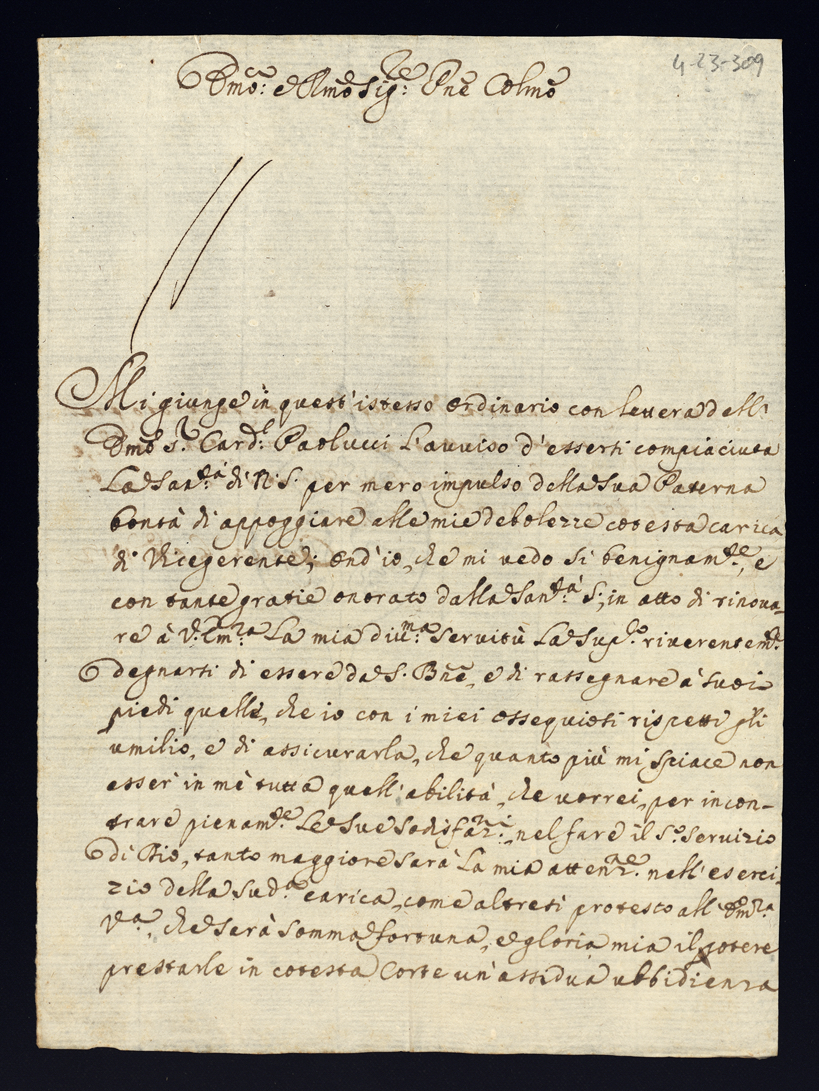 4-23-309
Emo: e Rmo Sig:re Pne Colmo
Mi giunge in quest'istesso ordinario con lettera dell'
Emo S.r Card.l Paolucci l'auuiso d'essersi compiaciuta
La San.tà di N. S. per mero impulso della Sua Paterna
bontà di appoggiare alle mie debolezze cotesta carica
di Vicegerente; ond'io, che mi vedo si benignam.te, e
con tante gratie onorato dalla San.tà S., in atto di rinoua-
re à V. Em.za La mia diu.ma Servitù La Sup.co riuerentem.te
degnarsi di essere da S. Bne, e di rassegnare à suoi
piedi quelli, che io con i miei ossequiosi rispetti gli
umilio, e di assicurarla, che quanto più mi spiace non
esser' in mè tutta quell'abilità, che uorrei, per incon-
trare pienam.te Le Sue Sodisfaz.ni, nel fare il S.o Servizio
di Dio, tanto maggiore sarà La mia attenz.ne nell'eserci-
zio della Sud.a carica, come altresi protesto all'Em.za
V.a, che serà somma fortuna, e gloria mia il potere
prestarle in cotesta Corte un'assidua ubbidienza